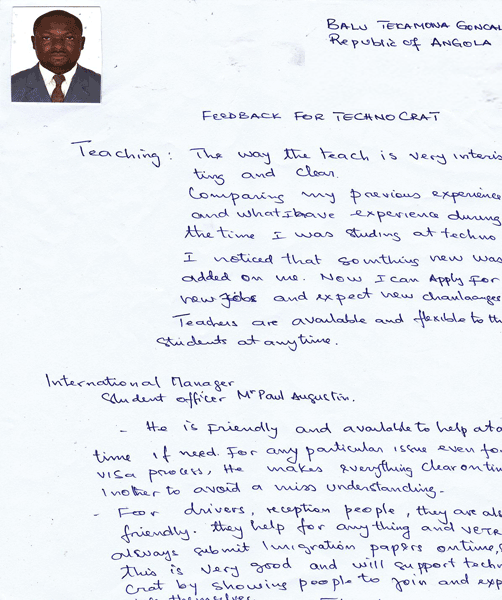 BALU TEKAMONA GONCAL
Republic of ANGOLA
FEEDBACK FOR TECHNOCRAT
Teaching: The way the teach is very interis
ting and clear.
Comparing my previous experience
and what I have experience during
the time I was studing at techno
I noticed that somthing new was
added on me. Now I can Apply For
new jobs and expect new chanlanges
Teachers are available and flexible to th
students at anytime.
International Manager
Student officer Mr Paul Augustin.
- He is Friendly and available to help at a
time if need. For any particular issue even fo
visa process, He makes everything clear on tim
Inother to avoid a miss understanding.
- For drivers, reception people, they are als
friendly. they help for anything and
always submit Imigration papers on time,
this is very good and will support tech
Crat by showing people to join and exp
themselves